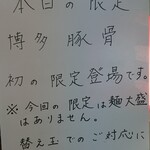 本日の限定
博多豚骨
初の限定登場です。
※今回の限定は麺大盛
はありません。
替え玉でのご対応に